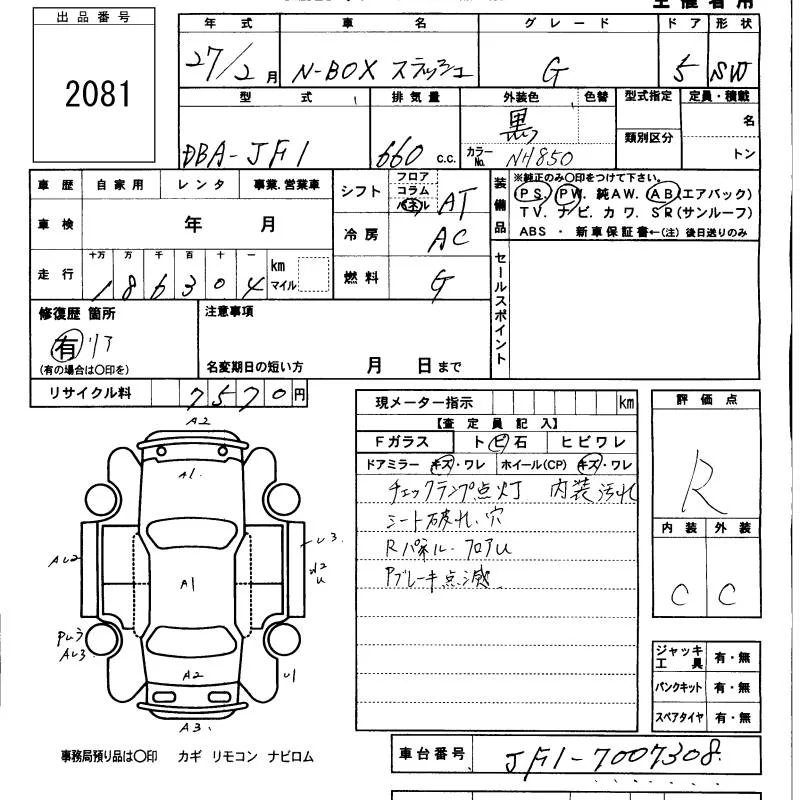 主催者用
出品番号
2081
年式 車名 グレード ドア 形状
27/2月 N-BOX スラッシュ G 5 SW
型式 排気量 外装色 色替 型式指定 定員・積載
DBA-JF1 660 c.c. 黒 カラーNo. NH850 類別区分 名 トン
車歴 自家用 レンタ 事業.営業車
車検 年 月
走行 十万 万 千 百 十 一 km マイル
186304
シフト フロア コラム パネル AT
冷房 AC
燃料 G
装備品
※純正のみ〇印をつけて下さい。
PS. PW. 純AW. AB(エアバック)
TV. ナビ. カワ. SR(サンルーフ)
ABS ・ 新車保証書←(注) 後日送りのみ
セールスポイント
修復歴 箇所
有 リア
(有の場合は〇印を)
注意事項
名変期日の短い方 月 日まで
リサイクル料 7570円
現メーター指示 km
【査定員記入】
Fガラス トビ石 ヒビワレ
ドアミラー キズ・ワレ ホイール(CP) キズ・ワレ
チェックランプ点灯 内装汚れ
シート破れ.穴
Rパネル.フロアU
Pブレーキ点滅
評価点
R
内装 外装
C C
ジャッキ工具 有・無
パンクキット 有・無
スペアタイヤ 有・無
A2
A1
AU2
A1
U3
U
PU3
AU3
A2
U1
A3
事務局預り品は〇印 カギ リモコン ナビロム
車台番号 JF1-7007308